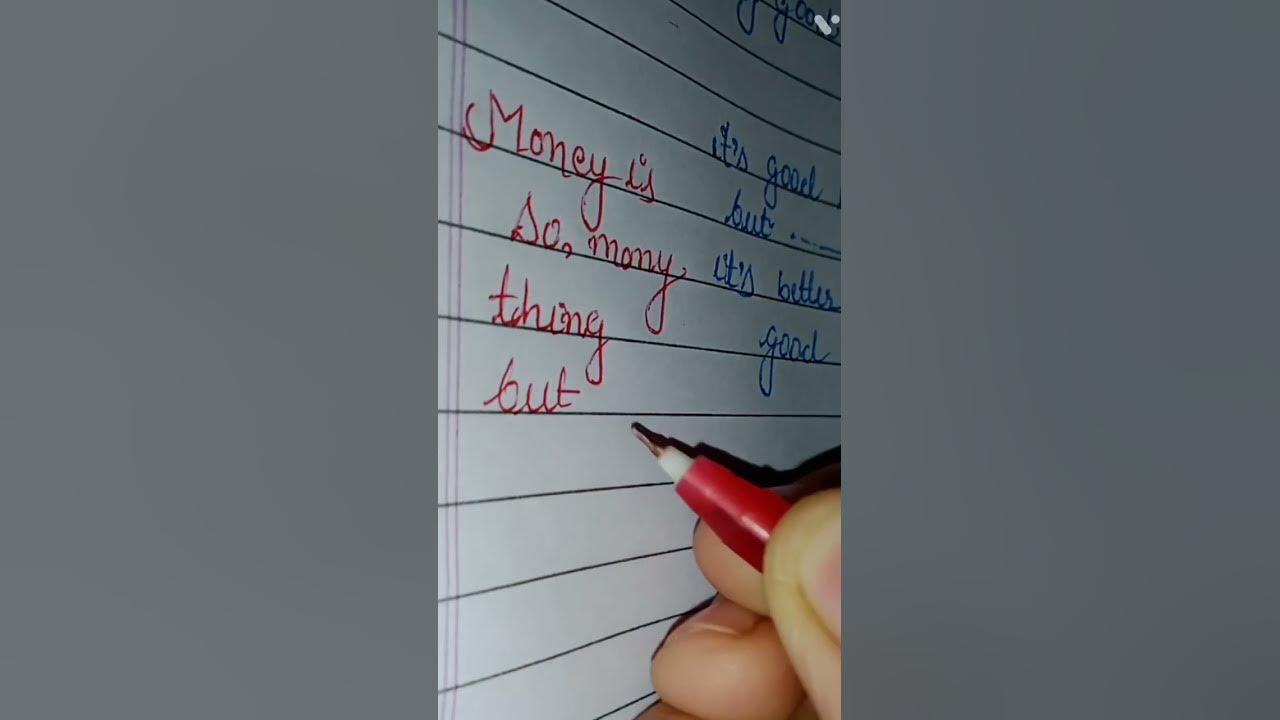 Money is
So, mony,
thing
but
good
it's good
but ....
it's better
good